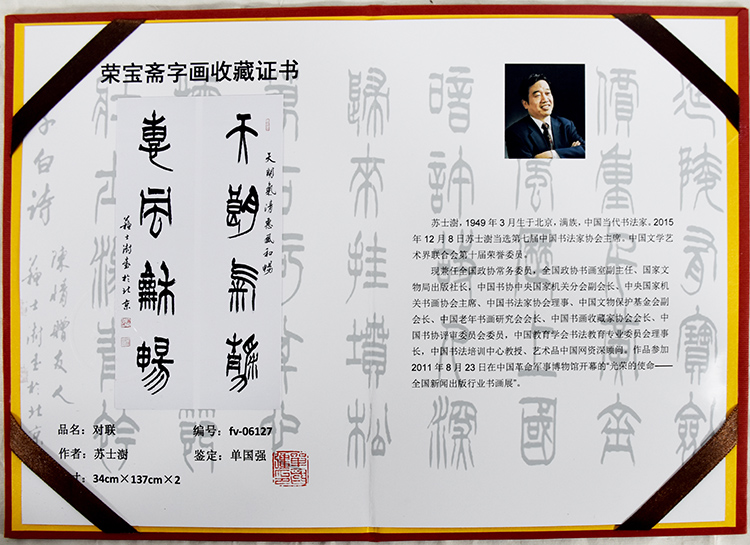 荣宝斋字画收藏证书
天朗气清惠风和畅
天朗气清
惠风和畅
苏士澍书于北京
品名：对联
编号：fv-06127
作者：苏士澍
鉴定：单国强
寸：34cm×137cm×2
苏士澍，1949 年 3 月生于北京，满族，中国当代书法家，2015
年 12 月 8 日苏士澍当选第七届中国书法家协会主席、中国文学艺
术界联合会第十届荣誉委员。
现兼任全国政协常务委员，全国政协书画室副主任、国家文
物局出版社长，中国书协中央国家机关分会副会长、中央国家机
关书画协会主席、中国书法家协会理事、中国文物保护基金会副
会长、中国老年书画研究会会长、中国书画收藏家协会会长、中
国书协评审委员会委员，中国教育学会书法教育专业委员会理事
长，中国书法培训中心教授、艺术品中国网资深顾问。作品参加
2011 年 8 月 23 日在中国革命军事博物馆开幕的“光荣的使命——
全国新闻出版行业书画展”。
延陵有宝剑
价重千黄金
观风历上国
暗许故人深
归来挂坟松
李白诗
陈情赠友人
苏士澍书于北京